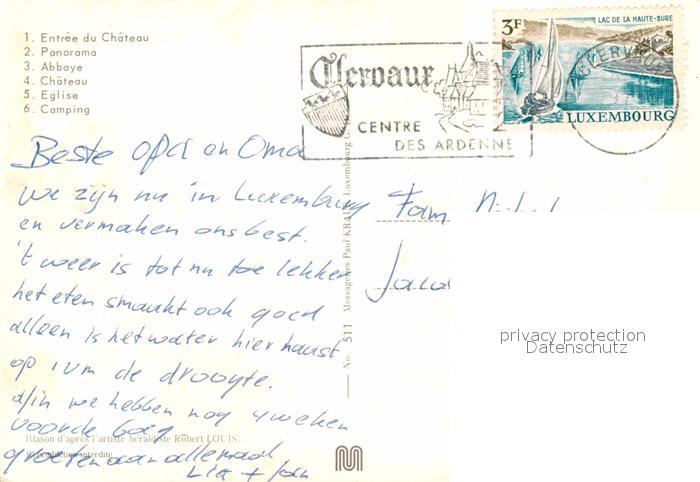 1. Entrée du Château
2. Panorama
3. Abbaye
4. Château
5. Eglise
6. Camping
3F
LAC DE LA HAUTE-SURE
LUXEMBOURG
Clervaux
CENTRE
DES ARDENNES
Beste opa en Oma
we zijn nu in Luxemburg
en vermaken ons best.
't weer is tot nu toe lekker
het eten smaakt ook goed
alleen is het water hier haast
op ivm de droogte.
we hebben nog 4 weken
voor de boeg
groeten aan allemaal
Fam.
No. 511 Messageries Paul KRAUS Luxembourg
Blason d'après l'artiste héraldiste Robert LOUIS.
Reproduction interdite
privacy protection
Datenschutz